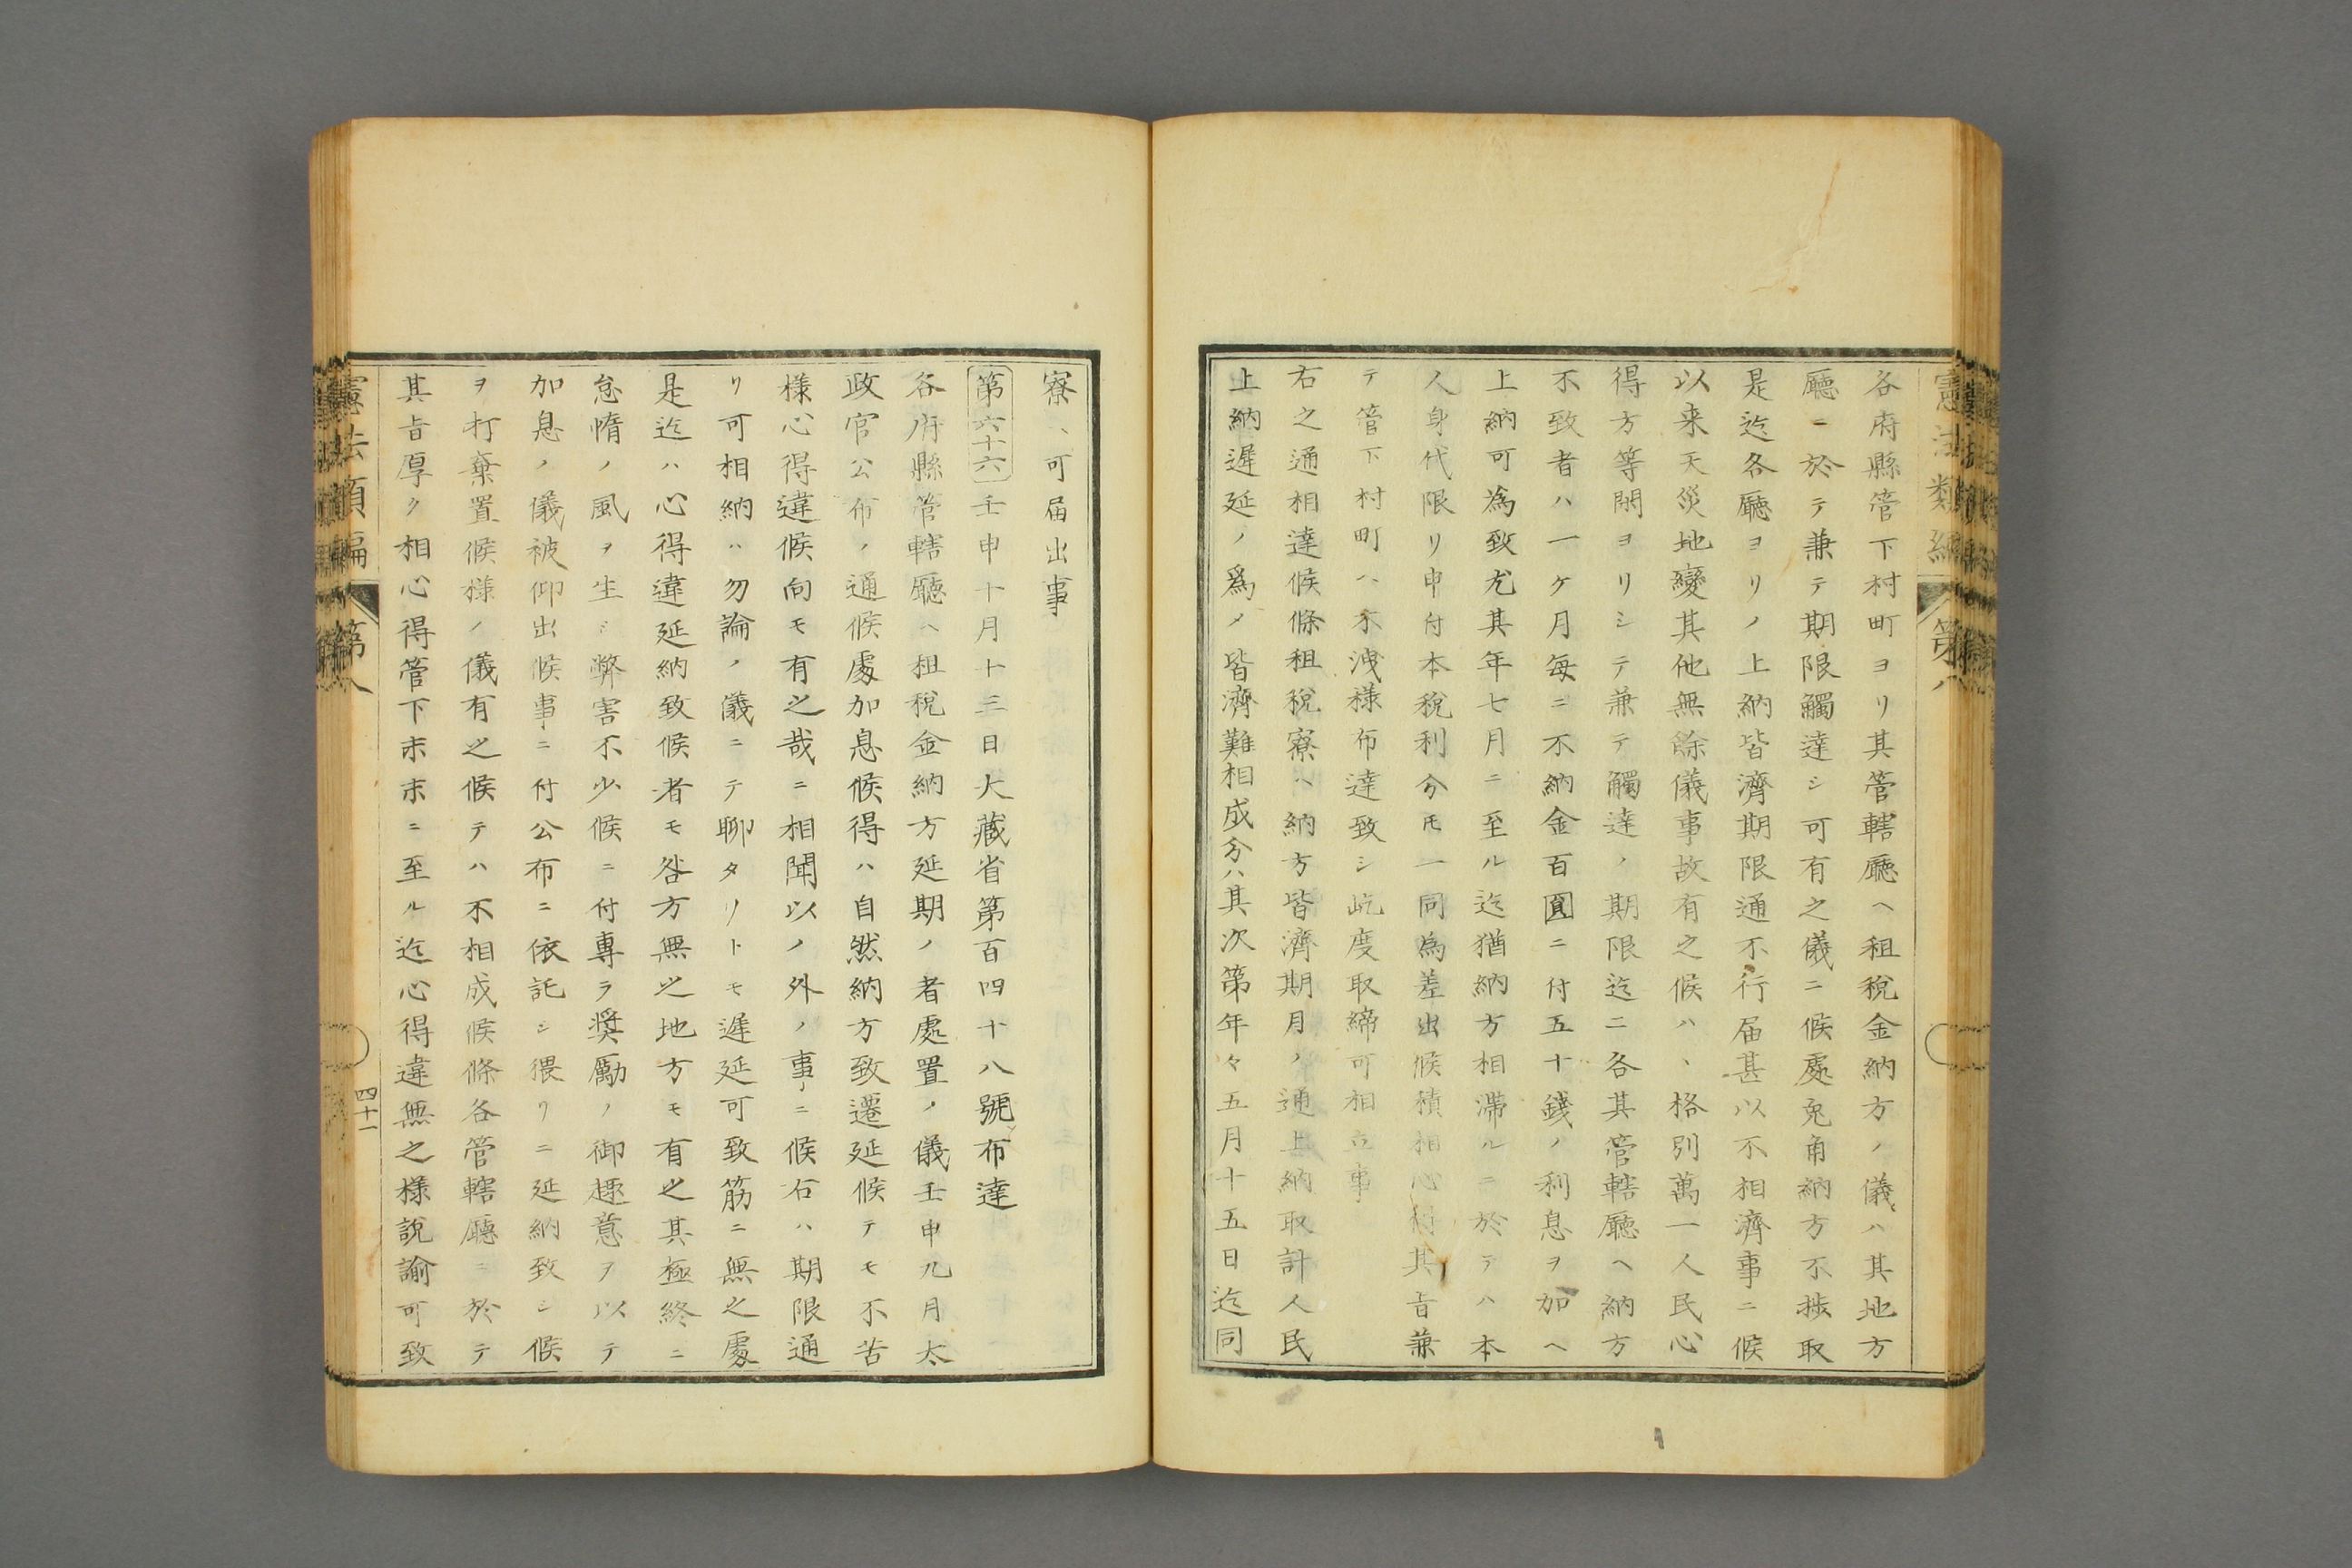 憲法類編 第八
各府縣管下村町ヨリ其管轄廳ヘ租稅金納方ノ儀ハ其地方
廳ニ於テ兼テ期限觸達シ可有之儀ニ候處兎角納方不捗取
是迄各廳ヨリノ上納皆濟期限通不行届甚以不相濟事ニ候
以来天災地變其他無餘儀事故有之候ハヽ格別萬一人民心
得方等閑ヨリシテ兼テ觸達ノ期限迄ニ各其管轄廳ヘ納方
不致者ハ一ケ月每ニ不納金百圓ニ付五十錢ノ利息ヲ加ヘ
上納可為致尤其年七月ニ至ル迄猶納方相滞ルニ於テハ本
人身代限リ申付本稅利分トモ一同為差出候積相心得其旨兼
テ管下村町ハ不洩様布達致シ屹度取締可相立事
右之通相達候條租稅寮ヘ納方皆濟期月ノ通上納取計人民
上納遲延ノ爲メ皆濟難相成分ハ其次第年々五月十五日迄同
寮ヘ可届出事
第六十六 壬申十月十三日大藏省第百四十八號布達
各府縣管轄廳ヘ租稅金納方延期ノ者處置ノ儀壬申九月太
政官公布ノ通候處加息候得ハ自然納方致遷延候テモ不苦
様心得違候向モ有之哉ニ相聞以ノ外ノ事ニ候右ハ期限通
リ可相納ハ勿論ノ儀ニテ聊タリトモ遲延可致筋ニ無之處
是迄ハ心得違延納致候者モ咎方無之地方モ有之其極終ニ
怠惰ノ風ヲ生シ弊害不少候ニ付專ラ奨勵ノ御趣意ヲ以テ
加息ノ儀被仰出候事ニ付公布ニ依託シ猥リニ延納致シ候
ヲ打棄置候様ノ儀有之候テハ不相成候條各管轄廳ニ於テ
其旨厚ク相心得管下末末ニ至ル迄心得違無之様説諭可致
憲法類編 第八 四十一